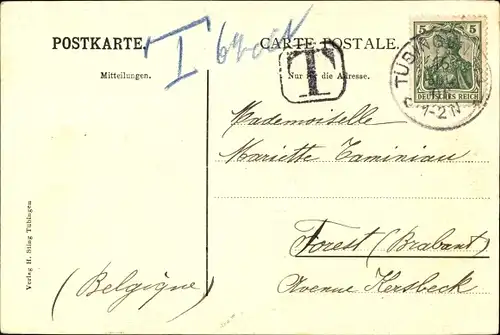 POSTKARTE. CARTE POSTALE.
Mitteilungen. Nur für die Adresse.
T
T
5 5
DEUTSCHES REICH
TÜBINGEN
1-2N
Mademoiselle
Mariette Taminiau
Forest (Brabant)
Avenue Kersbeck
(Belgique)
Verlag H. Sting Tübingen